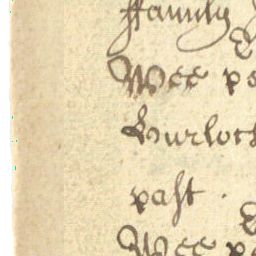 ffamily
Wee pe
Burloch
past .
Wee pe